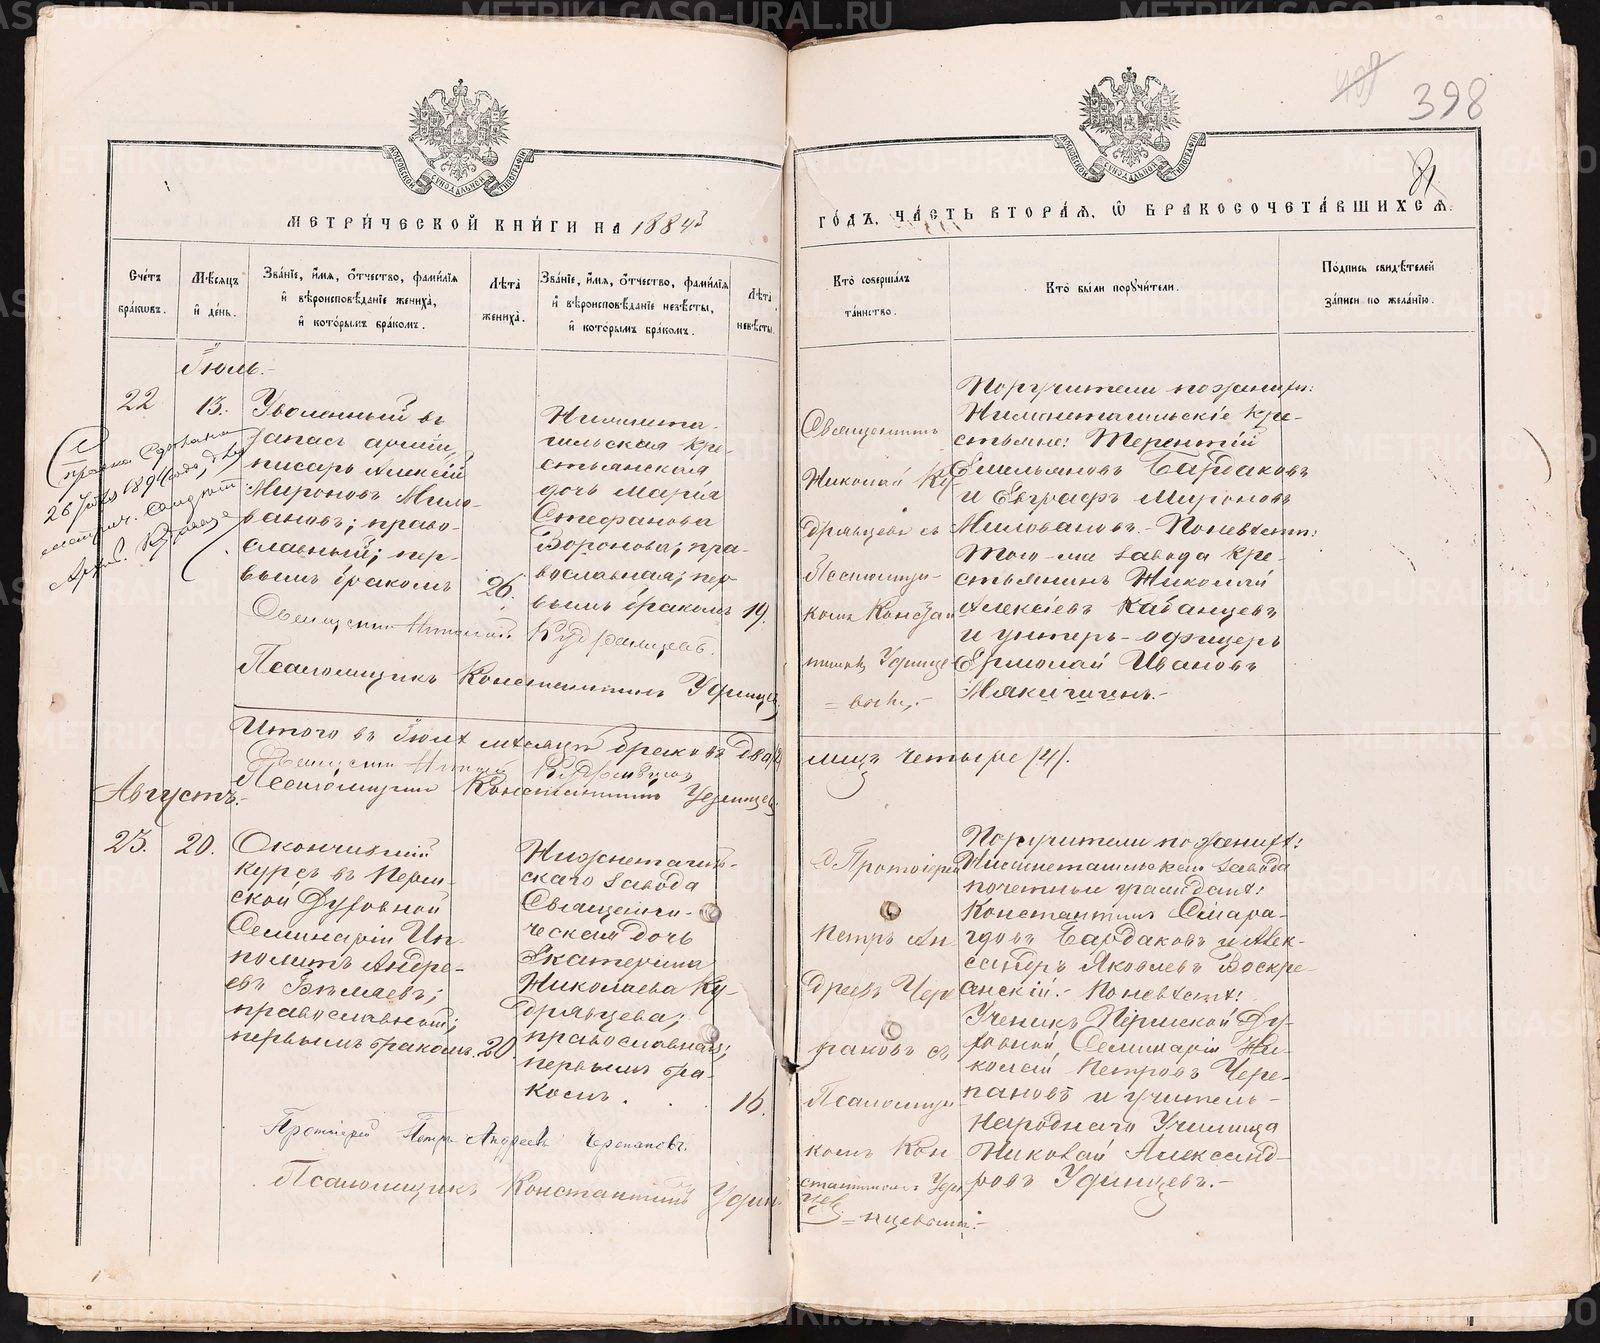 398
81
МЕТРИ́ЧЕСКОЙ КНИ́ГИ НА 1884
ГО́ДЪ, ЧА́СТЬ ВТОРА́Ѧ, Ѽ БРАКОСОЧЕТА́ВШИХСѦ.
Сче́тъ бра́ковъ.
Мѣ́сяцъ и҆ де́нь.
Зва́нїе, и҆́мя, ѻ҆́тчество, фами́лїя и҆ вѣроисповѣ́данїе жениха̀, и҆ кото́рымъ бра́комъ.
Лѣта̀ жениха̀.
Зва́нїе, и҆́мя, ѻ҆́тчество, фами́лїя и҆ вѣроисповѣ́данїе невѣ́сты, и҆ кото́рымъ бра́комъ.
Лѣта̀ невѣ́сты.
Кто̀ соверша́лъ та́инство.
Кто̀ бы́ли порꙋчи́тели.
По́дпись свидѣ́телей за́писи по жела́нїю.
Іюль.
22
13.
Уволенный въ
запасъ арміи,
писарь Алексій
Мироновъ Мило-
вановъ; право-
славный; пер-
вымъ бракомъ
26.
Нижнета-
гильская кре-
стьянская
дочь Марія
Стефанова
Воронова; пра-
вославная; пер-
вымъ бракомъ
19.
Священникъ
Николай Ку-
дрявцевъ съ
Псаломщи-
комъ Констан
тиномъ Удинце
=вымъ.-
Поручители по женихѣ:
Нижнетагильскіе кре-
стьяне: Терентій
Емельяновъ Бардаковъ
и Евграфъ Мироновъ
Миловановъ.- По невѣстѣ:
Того-же завода кре-
стьянинъ Николай
Алексіевъ Кабанцевъ
и унтеръ-офицеръ
Ермолай Ивановъ
Священникъ Николай Кудрявцевъ.
Псаломщикъ Константинъ Удинце
Итого въ Іюлѣ мѣсяцѣ браковъ два,
лицъ четыре (4).
Священникъ Николай Кудрявцевъ
Псаломщикъ Константинъ Удинцев
Августъ.-
23.
20.
Окончившій
курсъ въ Перм-
ской Духовной
Семинаріи Ип-
политъ Андре-
евъ Бѣляевъ;
православный;
первымъ бракомъ.
20
Нижнетагиль-
скаго завода
Священни-
ческая дочь
Екатерина
Николаева Ку-
дрявцева;
православная;
первымъ бра-
комъ.
16.
Протоіерей
Петръ Ан
дреевъ Чере
пановъ съ
Псаломщи
комъ Кон
стантиномъ Удин
=нцевымъ.-
Поручители по женихѣ:
Нижнетагильскаго завода
почетные граждане:
Константинъ Смара-
гдовъ Бардаковъ и Алек-
сандръ Яковлевъ Воскре-
санскій.- По невѣстѣ:
Ученикъ Пермской Ду-
ховной Семинаріи Ни-
колай Петровъ Чере-
пановъ и учитель-
Народнаго Училища
Николай Александ-
ровъ Удинцевъ.-
Протоіерей Петръ Андреевъ Черепановъ.
Псаломщикъ Константинъ Удин